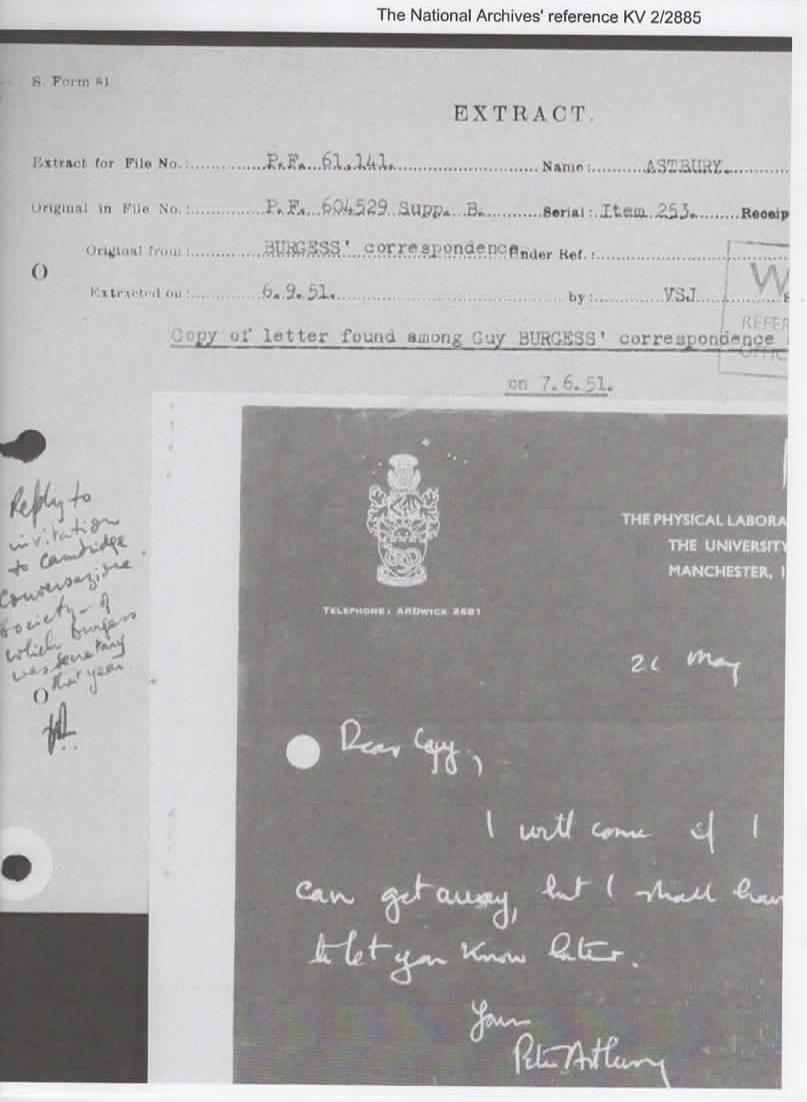 The National Archives' reference KV 2/2885
S. Form 81
EXTRACT.
Extract for File No.: P.F. 61,141. Name: ASTBURY.
Original in File No.: P.F. 604529 Supp. B. Serial: Item 253. Receip
Original from: BURGESS' correspondence Under Ref.:
Extracted on: 6.9.51. by: VSJ
REFER
Copy of letter found among Guy BURGESS' correspondence
on 7.6.51.
Reply to
invitation
to Cambridge
Conversazione
Society – of
which Burgess
was secretary
that year.
THE PHYSICAL LABORA
THE UNIVERSITY
MANCHESTER, 1
TELEPHONE: ARDWICK 2681
May
Dear Guy,
I will come if I
can get away, but I shall have
to let you know later.
Yours
Peter Astbury